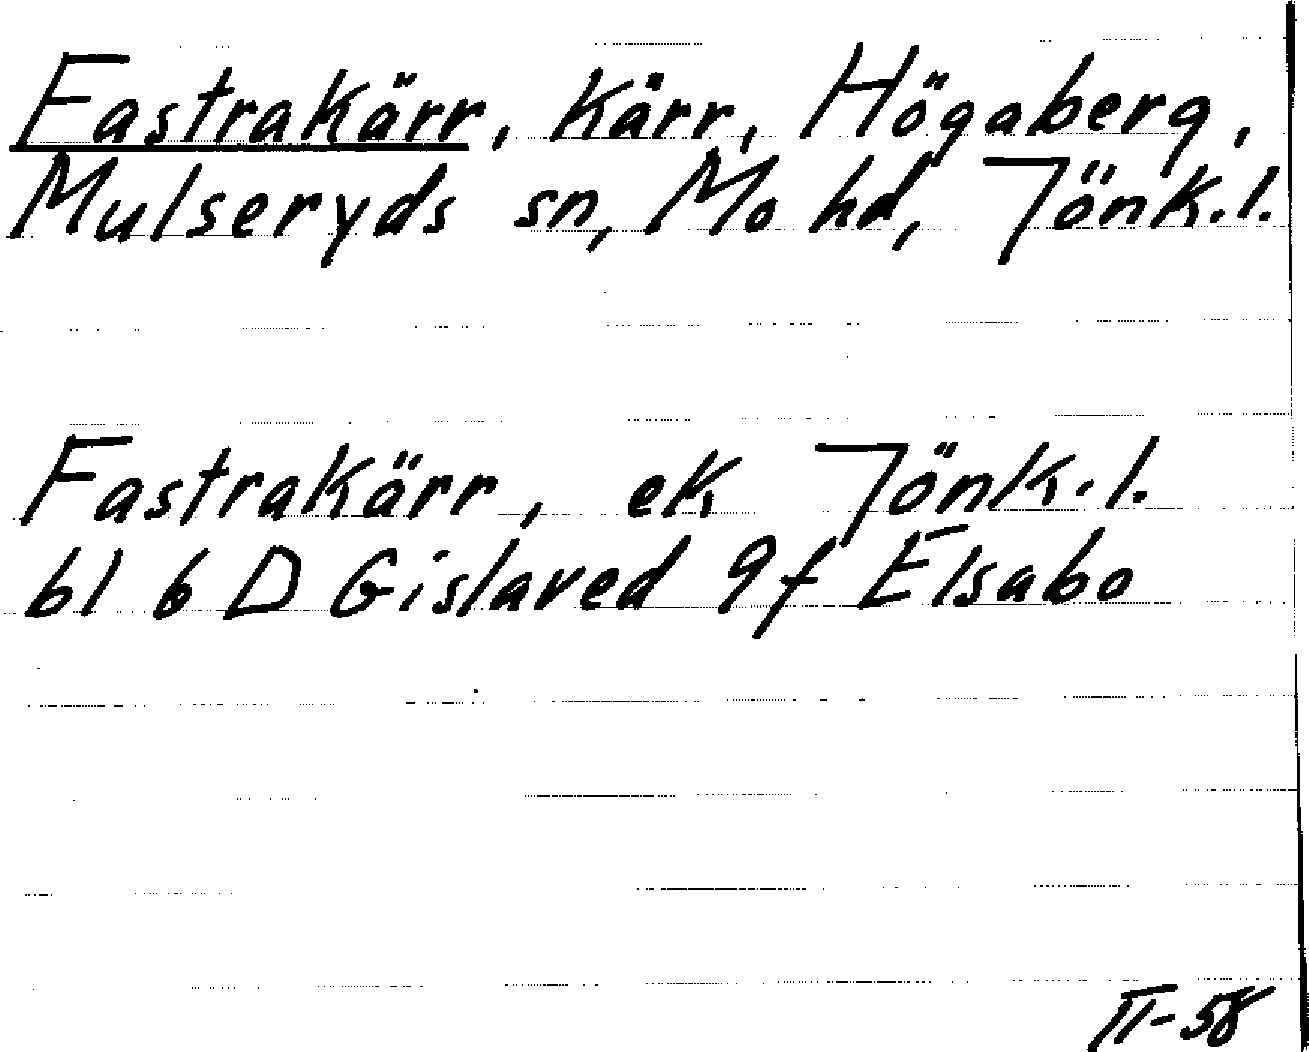 Fastrakärr, kärr, Högaberg,
Mulseryds sn, Mo hd, Jönk.l.
Fastrakärr, ek Jönk.l.
bl 6 D Gislaved 9f Elsabo
II-58